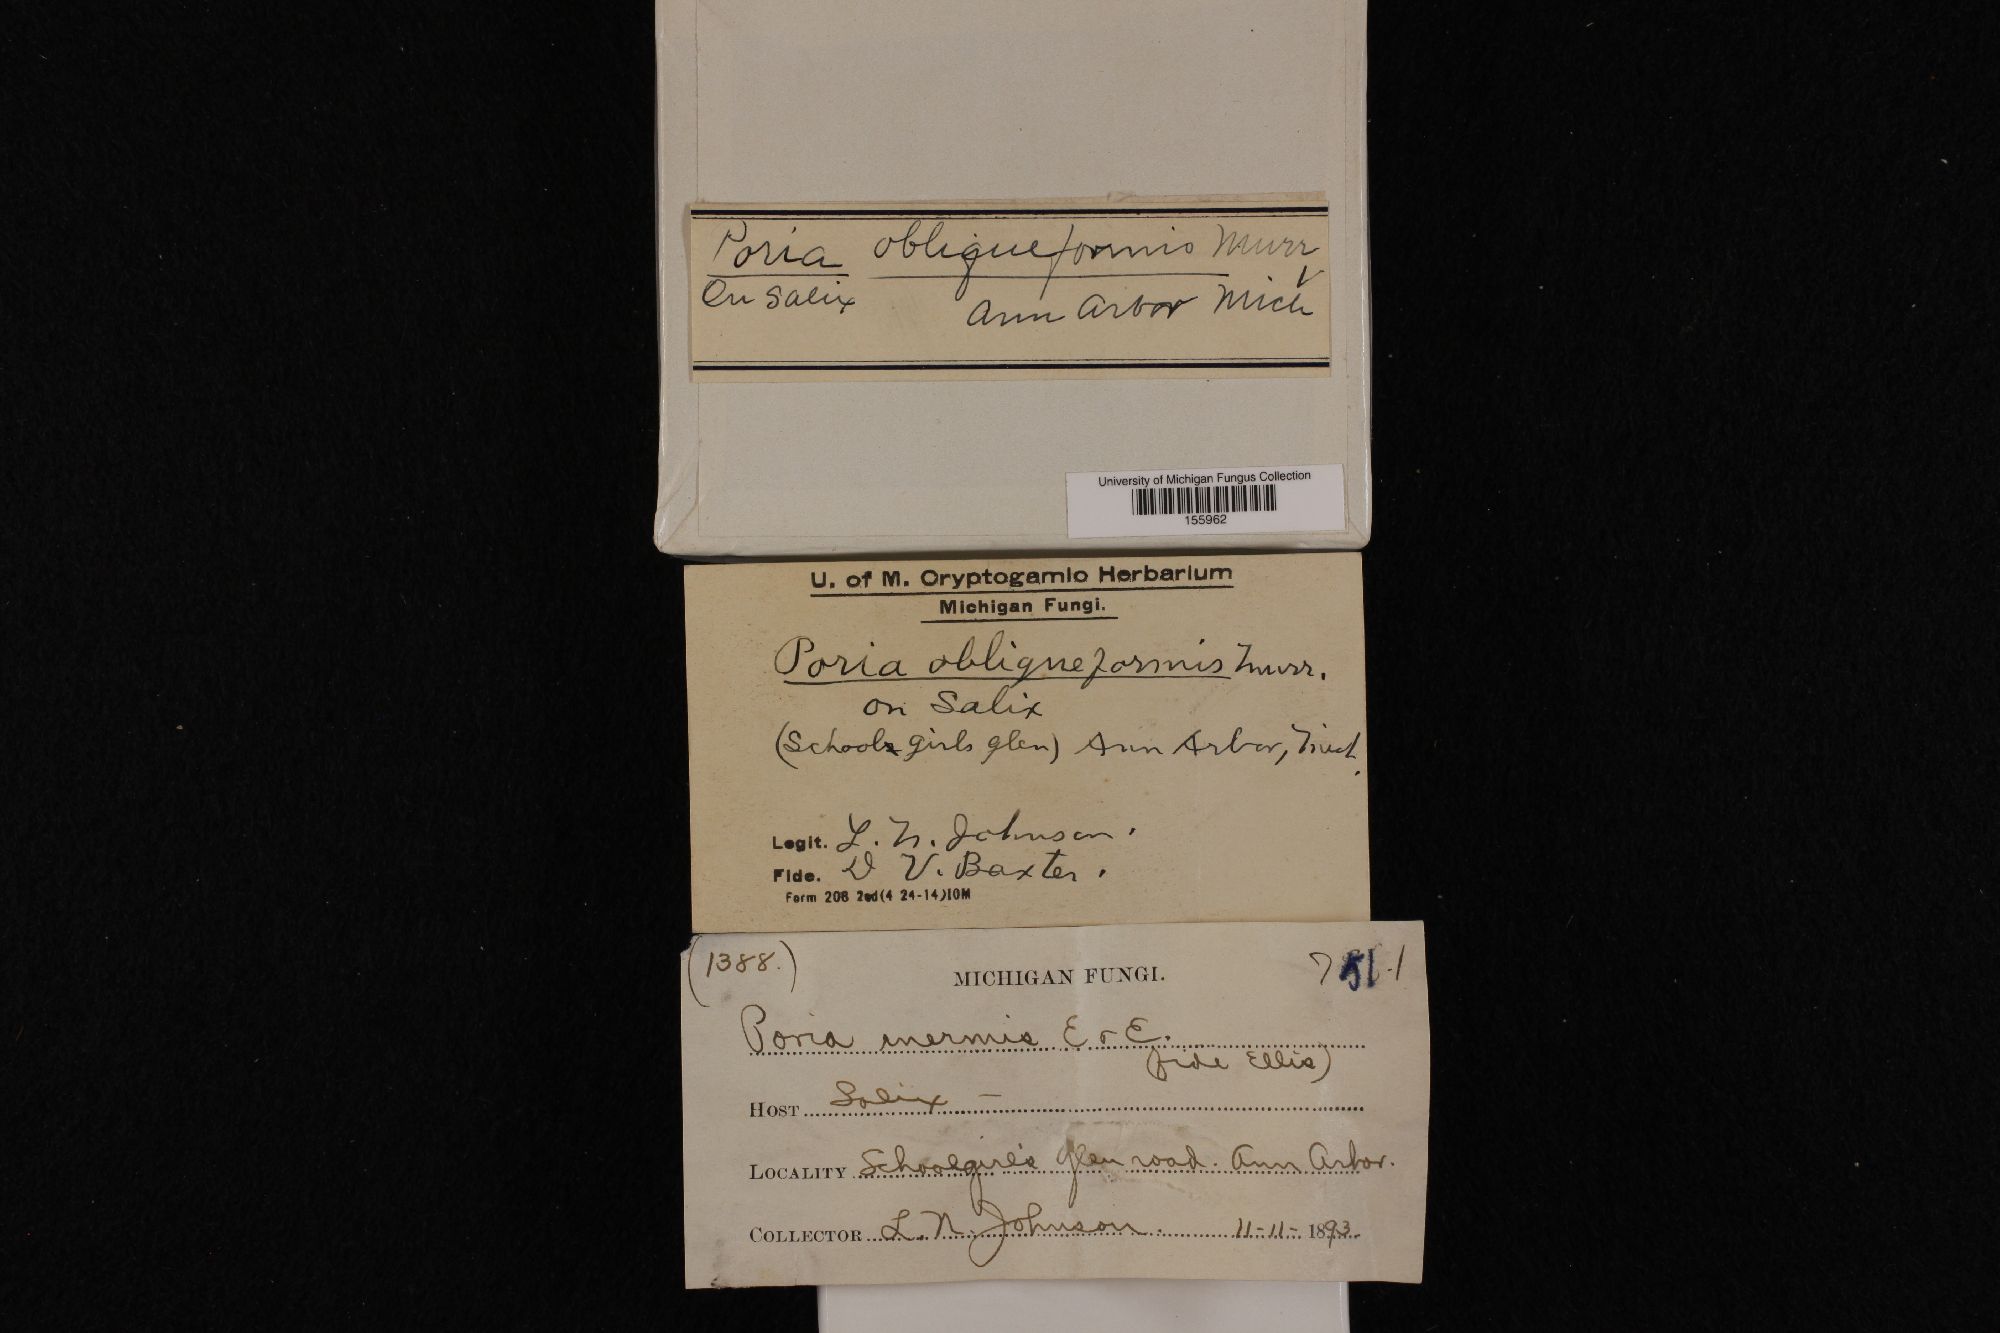 Poria obliqueformis Murr
On Salix
Ann Arbor Mich
University of Michigan Fungus Collection
155962
U. of M. Cryptogamic Herbarium
Michigan Fungi.
Poria obliqueformis Murr.
on Salix
(School girls glen) Ann Arbor, Mich.
Legit. L. N. Johnson.
Fide. D V. Baxter.
Form 208 2ed(4 24-14)10M
(1388.)
MICHIGAN FUNGI.
Poria inermis E & E.
(fide Ellis)
HOST Salix –
LOCALITY Schoolgirl's Glen road. Ann Arbor.
COLLECTOR L. N. Johnson. 11-11- 1893.